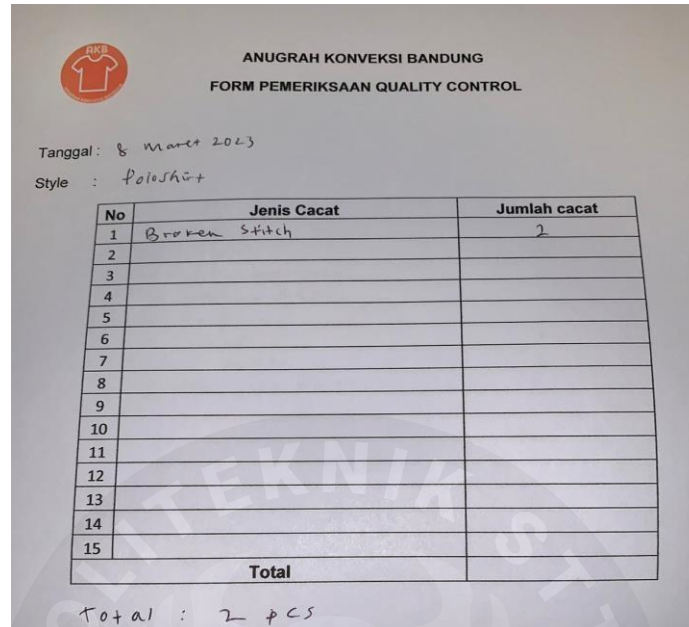 AKB
ANUGRAH KONVEKSI BANDUNG
FORM PEMERIKSAAN QUALITY CONTROL
Tanggal : 8 Maret 2023
Style : Poloshirt
No Jenis Cacat Jumlah cacat
1 Broken Stitch 2
2
3
4
5
6
7
8
9
10
11
12
13
14
15
Total
Total : 2 pcs